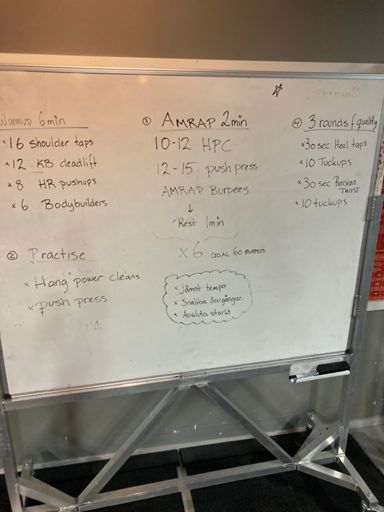 Warmup 6 min
* 16 shoulder taps
* 12 KB deadlift
* 8 HR pushups
* 6 Bodybuilders
② Practise
* Hang power cleans
* push press
③ AMRAP 2min
10-12 HPC
12-15 push press
AMRAP Burpees
↓
Rest 1min
X 6 GOAL 60 BURPEES
* Jämnt tempo
* Snabba övergångar
* Avsluta starkt
④ 3 rounds f quality
* 30 sec Heal taps
* 10 Tuckups
* 30 sec Russian Twist
* 10 tuckups